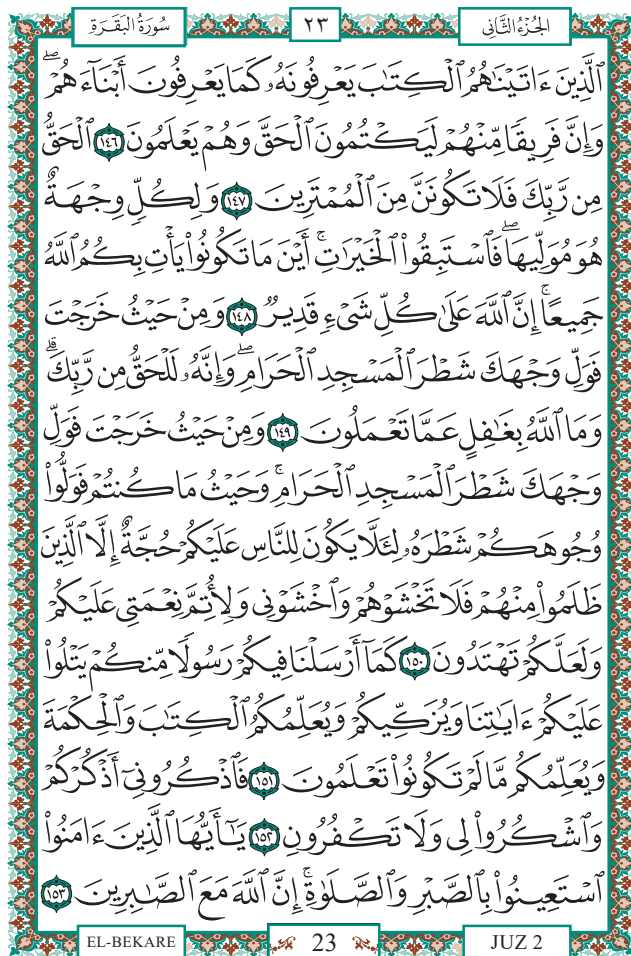 سُورَةُ البَقَرَةِ ٢٣ الجُزْءُ الثَّانِي
ٱلَّذِينَ ءَاتَيْنَٰهُمُ ٱلْكِتَٰبَ يَعْرِفُونَهُۥ كَمَا يَعْرِفُونَ أَبْنَآءَهُمْۖ
وَإِنَّ فَرِيقًا مِّنْهُمْ لَيَكْتُمُونَ ٱلْحَقَّ وَهُمْ يَعْلَمُونَ ١٤٦ ٱلْحَقُّ
مِن رَّبِّكَ فَلَا تَكُونَنَّ مِنَ ٱلْمُمْتَرِينَ ١٤٧ وَلِكُلٍّ وِجْهَةٌ
هُوَ مُوَلِّيهَاۖ فَٱسْتَبِقُوا۟ ٱلْخَيْرَٰتِۚ أَيْنَ مَا تَكُونُوا۟ يَأْتِ بِكُمُ ٱللَّهُ
جَمِيعًاۚ إِنَّ ٱللَّهَ عَلَىٰ كُلِّ شَىْءٍ قَدِيرٌ ١٤٨ وَمِنْ حَيْثُ خَرَجْتَ
فَوَلِّ وَجْهَكَ شَطْرَ ٱلْمَسْجِدِ ٱلْحَرَامِۖ وَإِنَّهُۥ لَلْحَقُّ مِن رَّبِّكَۗ
وَمَا ٱللَّهُ بِغَٰفِلٍ عَمَّا تَعْمَلُونَ ١٤٩ وَمِنْ حَيْثُ خَرَجْتَ فَوَلِّ
وَجْهَكَ شَطْرَ ٱلْمَسْجِدِ ٱلْحَرَامِۚ وَحَيْثُ مَا كُنتُمْ فَوَلُّوا۟
وُجُوهَكُمْ شَطْرَهُۥ لِئَلَّا يَكُونَ لِلنَّاسِ عَلَيْكُمْ حُجَّةٌ إِلَّا ٱلَّذِينَ
ظَلَمُوا۟ مِنْهُمْ فَلَا تَخْشَوْهُمْ وَٱخْشَوْنِى وَلِأُتِمَّ نِعْمَتِى عَلَيْكُمْ
وَلَعَلَّكُمْ تَهْتَدُونَ ١٥٠ كَمَآ أَرْسَلْنَا فِيكُمْ رَسُولًا مِّنكُمْ يَتْلُوا۟
عَلَيْكُمْ ءَايَٰتِنَا وَيُزَكِّيكُمْ وَيُعَلِّمُكُمُ ٱلْكِتَٰبَ وَٱلْحِكْمَةَ
وَيُعَلِّمُكُم مَّا لَمْ تَكُونُوا۟ تَعْلَمُونَ ١٥١ فَٱذْكُرُونِىٓ أَذْكُرْكُمْ
وَٱشْكُرُوا۟ لِى وَلَا تَكْفُرُونِ ١٥٢ يَٰٓأَيُّهَا ٱلَّذِينَ ءَامَنُوا۟
ٱسْتَعِينُوا۟ بِٱلصَّبْرِ وَٱلصَّلَوٰةِۚ إِنَّ ٱللَّهَ مَعَ ٱلصَّٰبِرِينَ ١٥٣
EL-BEKARE 23 JUZ 2